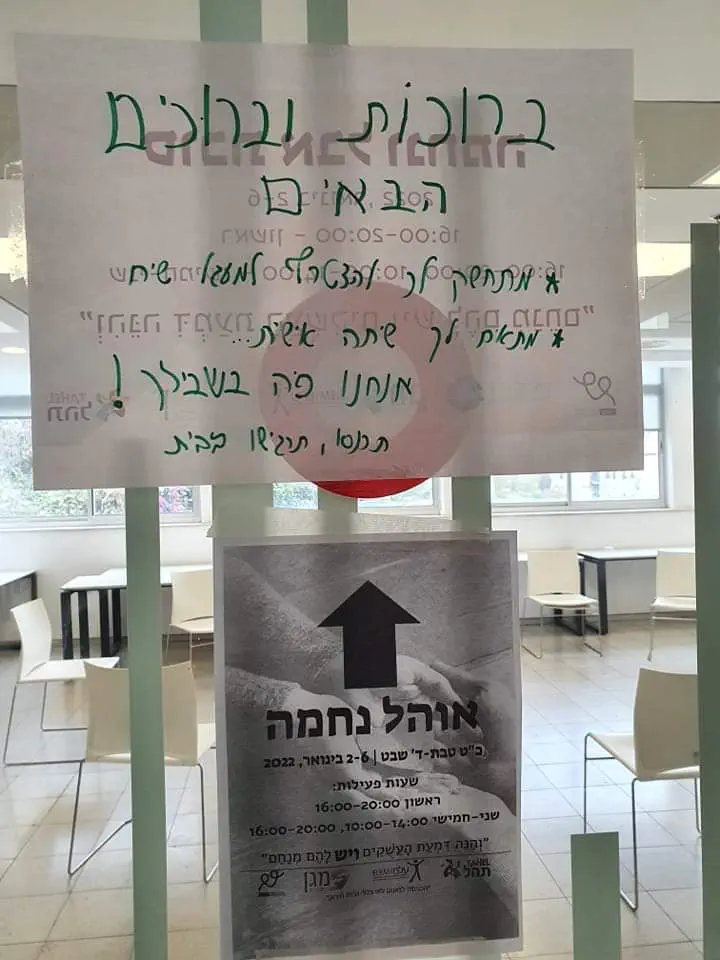 ברוכות וברוכים
הבאים
* מתחשק לך להצטרף למעגל שיח
* מתאים לך שיחה אישית...
אנחנו פה בשבילך!
תכנסו, תרגישו בבית
אוהל נחמה
כ"ט טבת-ד' שבט | 2-6 בינואר, 2022
שעות פעילות:
ראשון 16:00-20:00
שני-חמישי 10:00-14:00, 16:00-20:00
"וְהִנֵּה דִּמְעַת הָעֲשֻׁקִים ויש לָהֶם מְנַחֵם"
מגן
TAHEL
תהל